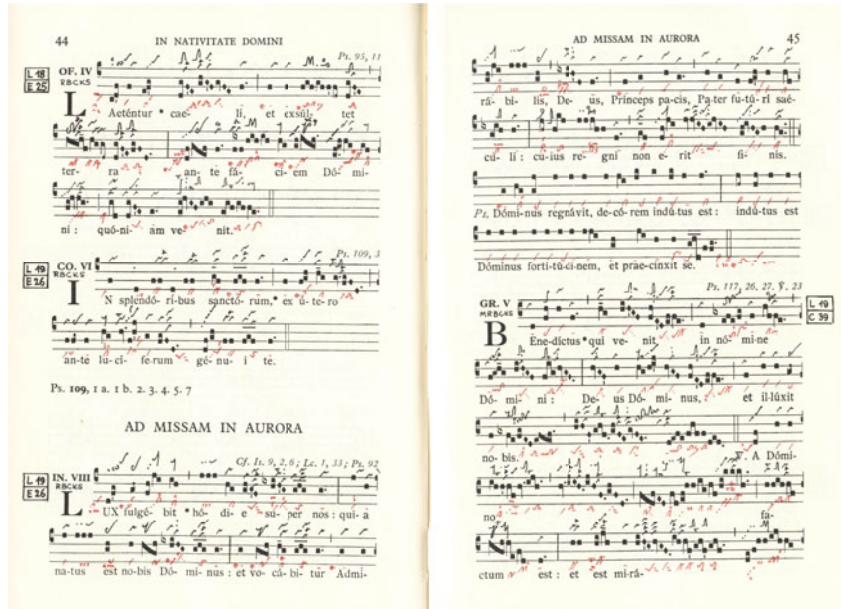 44 IN NATIVITATE DOMINI
Ps. 95, 11
L 18
E 25
OF. IV
RBCKS
L Aeténtur * cae- li, et exsúl- tet
ter- ra an- te fá- ci- em Dó- mi-
ni : quó-ni- am ve- nit.
Ps. 109, 3
L 19
E 26
CO. VI
RBCKS
I N splendó- ri-bus sanctó- rum,* ex ú- te- ro
an-te lu-cí- fe-rum gé-nu- i te.
Ps. 109, 1 a. 1 b. 2. 3. 4. 5. 7
AD MISSAM IN AURORA
Cf. Is. 9, 2.6 ; Lc. 1, 33 ; Ps. 92
L 19
E 26
IN. VIII
RBCKS
L UX fulgé- bit * hó- di- e su- per nos : qui- a
na-tus est no-bis Dó- mi- nus : et vo- cá- bi- tur Admi-
AD MISSAM IN AURORA 45
rá- bi- lis, De- us, Princeps pa-cis, Pa-ter fu-tú-ri saé-
cu- li : cu-ius re- gni non e- rit fi- nis.
Ps. Dómi-nus regnávit, de-có-rem indú-tus est : indú-tus est
Dóminus forti-tú-ci-nem, et prae-cínxit se.
Ps. 117, 26. 27. ℣. 23
L 19
C 39
GR. V
MRBCKS
B Ene-díctus * qui ve- nit in nó- mi-ne
Dó- mi- ni : De- us Dó- mi- nus, et il-lúxit
no-bis. ℣. A Dómi-
no fa-
ctum est : et est mi-rá-